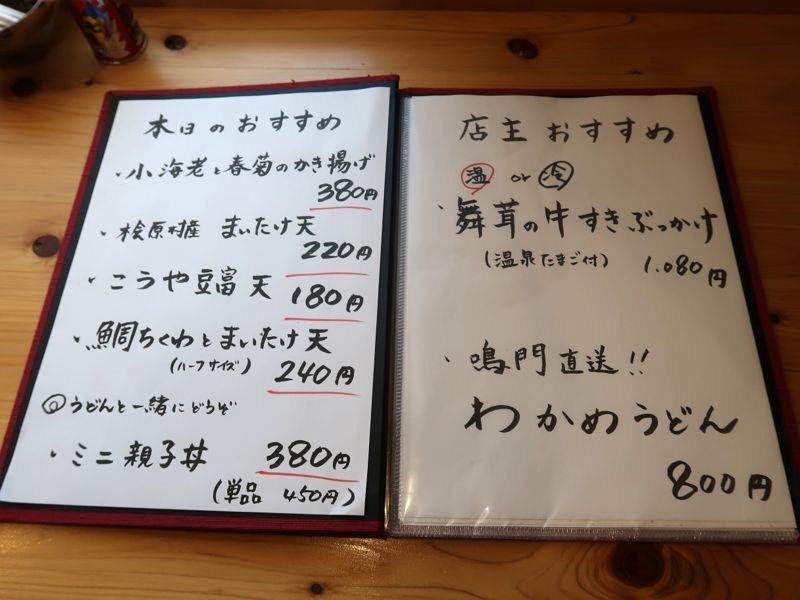 本日のおすすめ
・小海老と春菊のかき揚げ
380円
・檜原村産 まいたけ天
220円
・こうや豆富天 180円
・鯛ちくわとまいたけ天
(ハーフサイズ) 240円
◎うどんと一緒にどうぞ
・ミニ親子丼 380円
(単品 450円)
店主おすすめ
温 or 冷
・舞茸の牛すきぶっかけ
(温泉たまご付) 1.080円
・鳴門直送!!
わかめうどん
800円